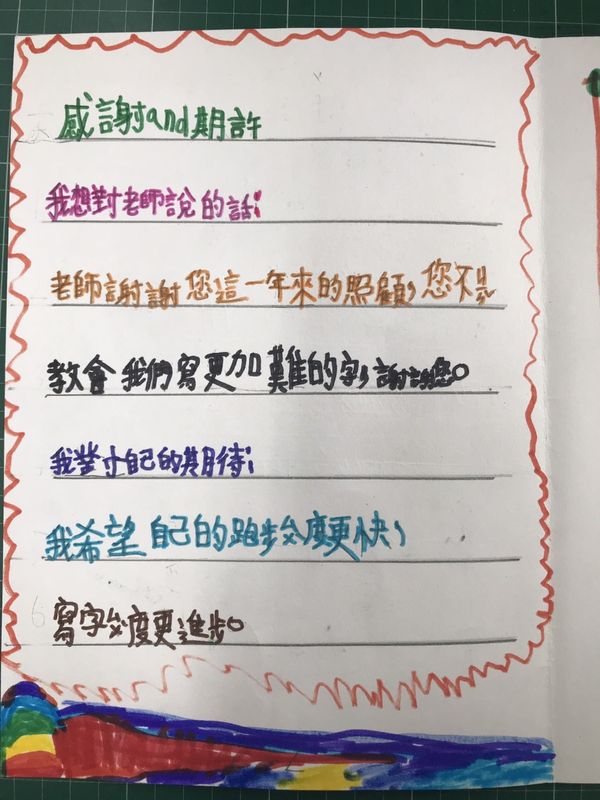 感謝and期許
我想對老師說的話:
老師謝謝您這一年來的照顧,您不只
教會我們寫更加難的字,謝謝您。
我對自己的期待:
我希望自己的跑步變更快,
寫字變更進步。